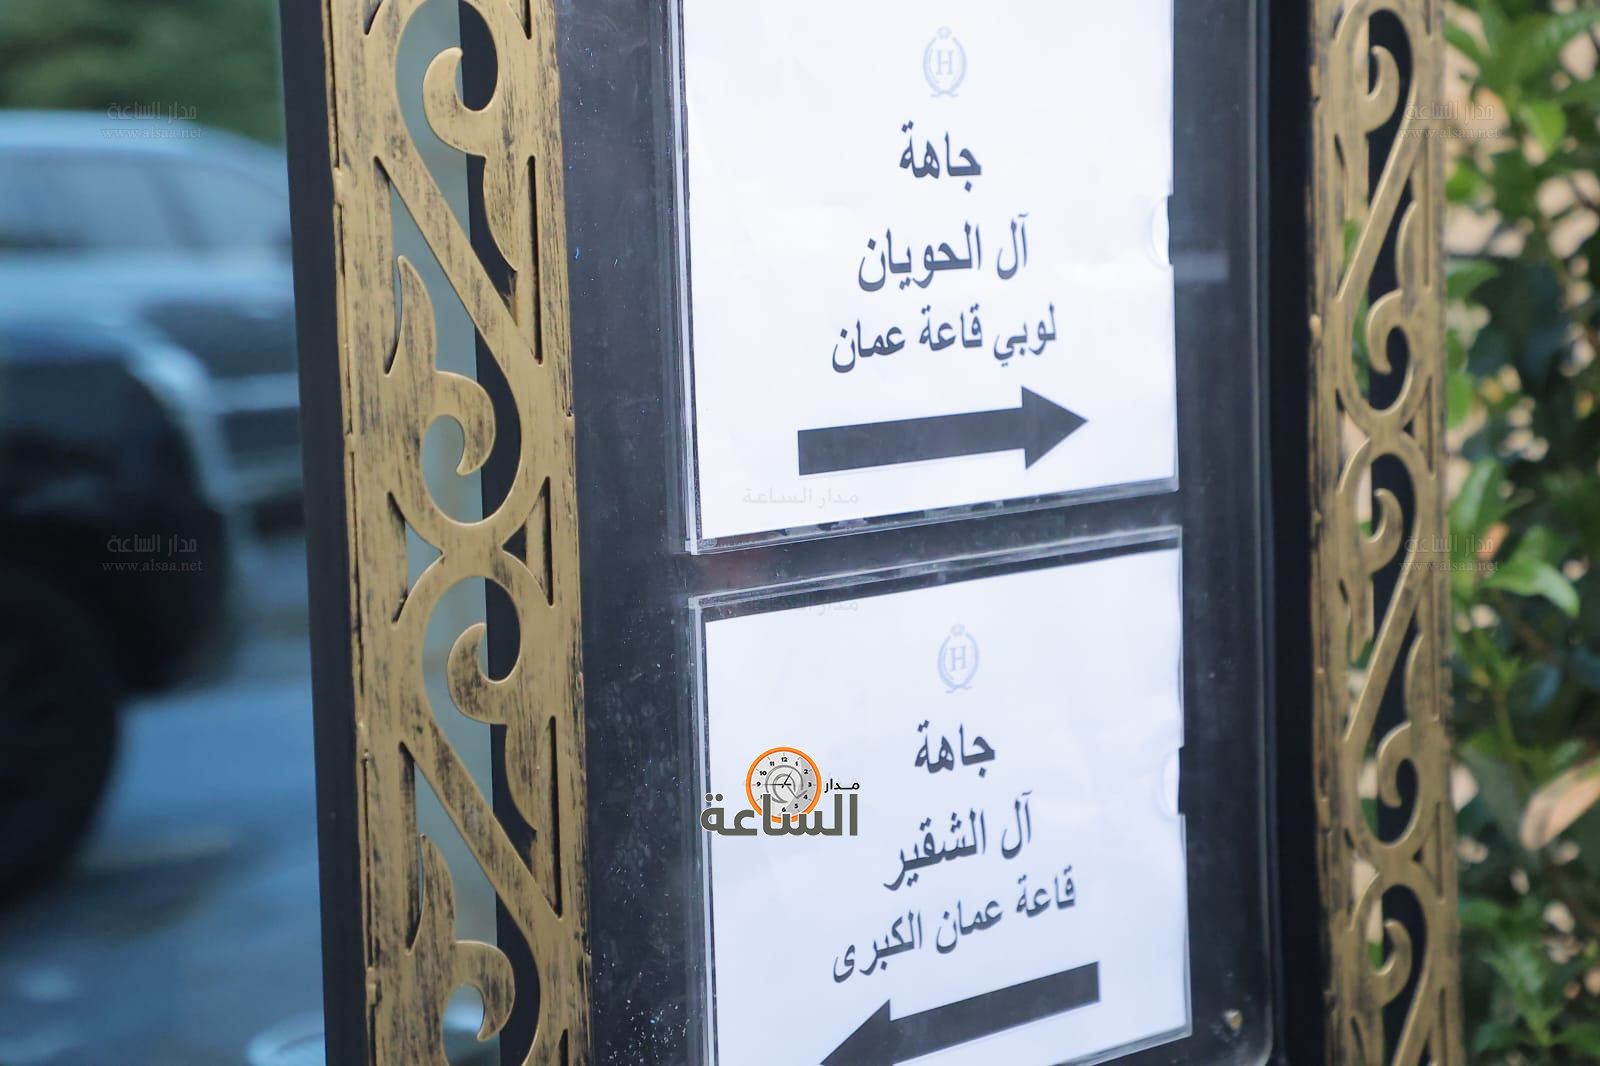 H
جاهة
آل الحويان
لوبي قاعة عمان
H
جاهة
آل الشقير
قاعة عمان الكبرى
مدار
الساعة
مدار الساعة
www.alsaa.net
مدار الساعة
www.alsaa.net
مدار الساعة
www.alsaa.net
مدار الساعة
www.alsaa.net
مدار الساعة
مدار الساعة